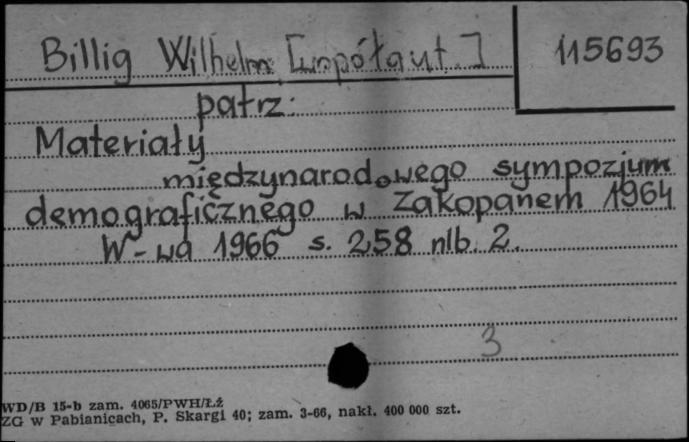 Billig Wilhelm [współaut.] 115693
patrz:
Materiały
międzynarodowego sympozjum
demograficznego w Zakopanem 1964
W-wa 1966 s. 258 nlb. 2.
3
WD/B 15-b zam. 4065/PWH/Łź
ZG w Pabianicach, P. Skargi 40; zam. 3-66, nakł. 400 000 szt.